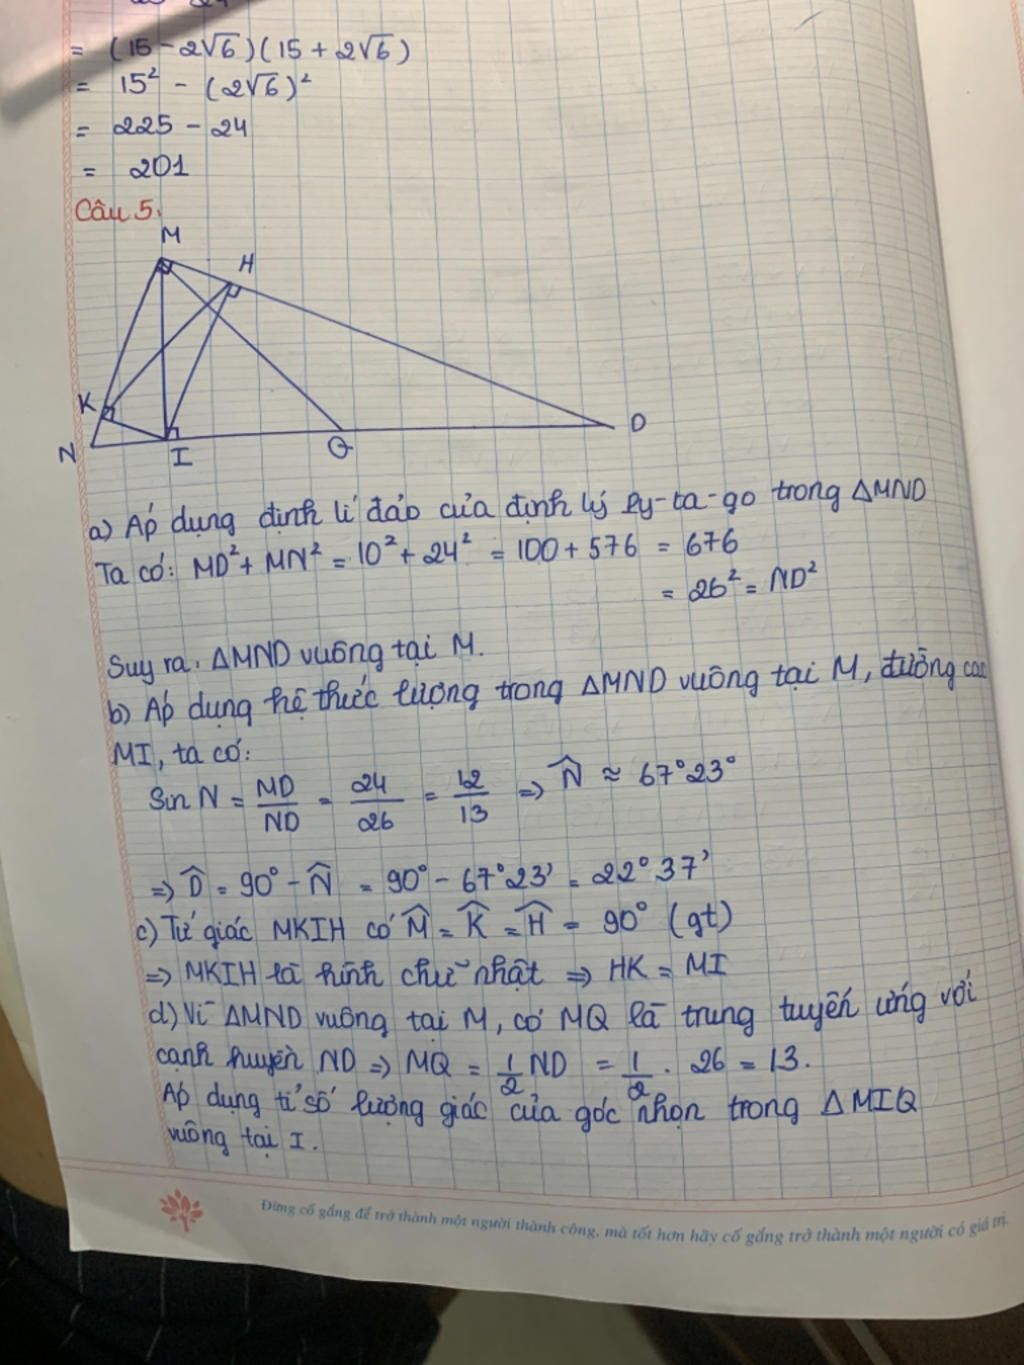 = (15 - 2√6)(15 + 2√6)
= 15² - (2√6)²
= 225 - 24
= 201
Câu 5.
M
H
K
N
I
Q
D
a) Áp dụng định lí đảo của định lý Py-ta-go trong ΔMND
Ta có: MD² + MN² = 10² + 24² = 100 + 576 = 676
= 26² = ND²
Suy ra. ΔMND vuông tại M.
b) Áp dụng hệ thức lượng trong ΔMND vuông tại M, đường cao
MI, ta có:
Sin N = MD/ND = 24/26 = 12/13 => N̂ ≈ 67°23°
=> D̂ = 90° - N̂ = 90° - 67°23' = 22°37'
c) Tứ giác MKIH có M̂ = K̂ = Ĥ = 90° (gt)
=> MKIH là hình chữ nhật => HK = MI
d) Vì ΔMND vuông tại M, có MQ là trung tuyến ứng với
cạnh huyền ND => MQ = 1/2 ND = 1/2 . 26 = 13.
Áp dụng tỉ số lượng giác của góc nhọn trong ΔMIQ
vuông tại I.
Đừng cố gắng để trở thành một người thành công, mà tốt hơn hãy cố gắng trở thành một người có giá trị.